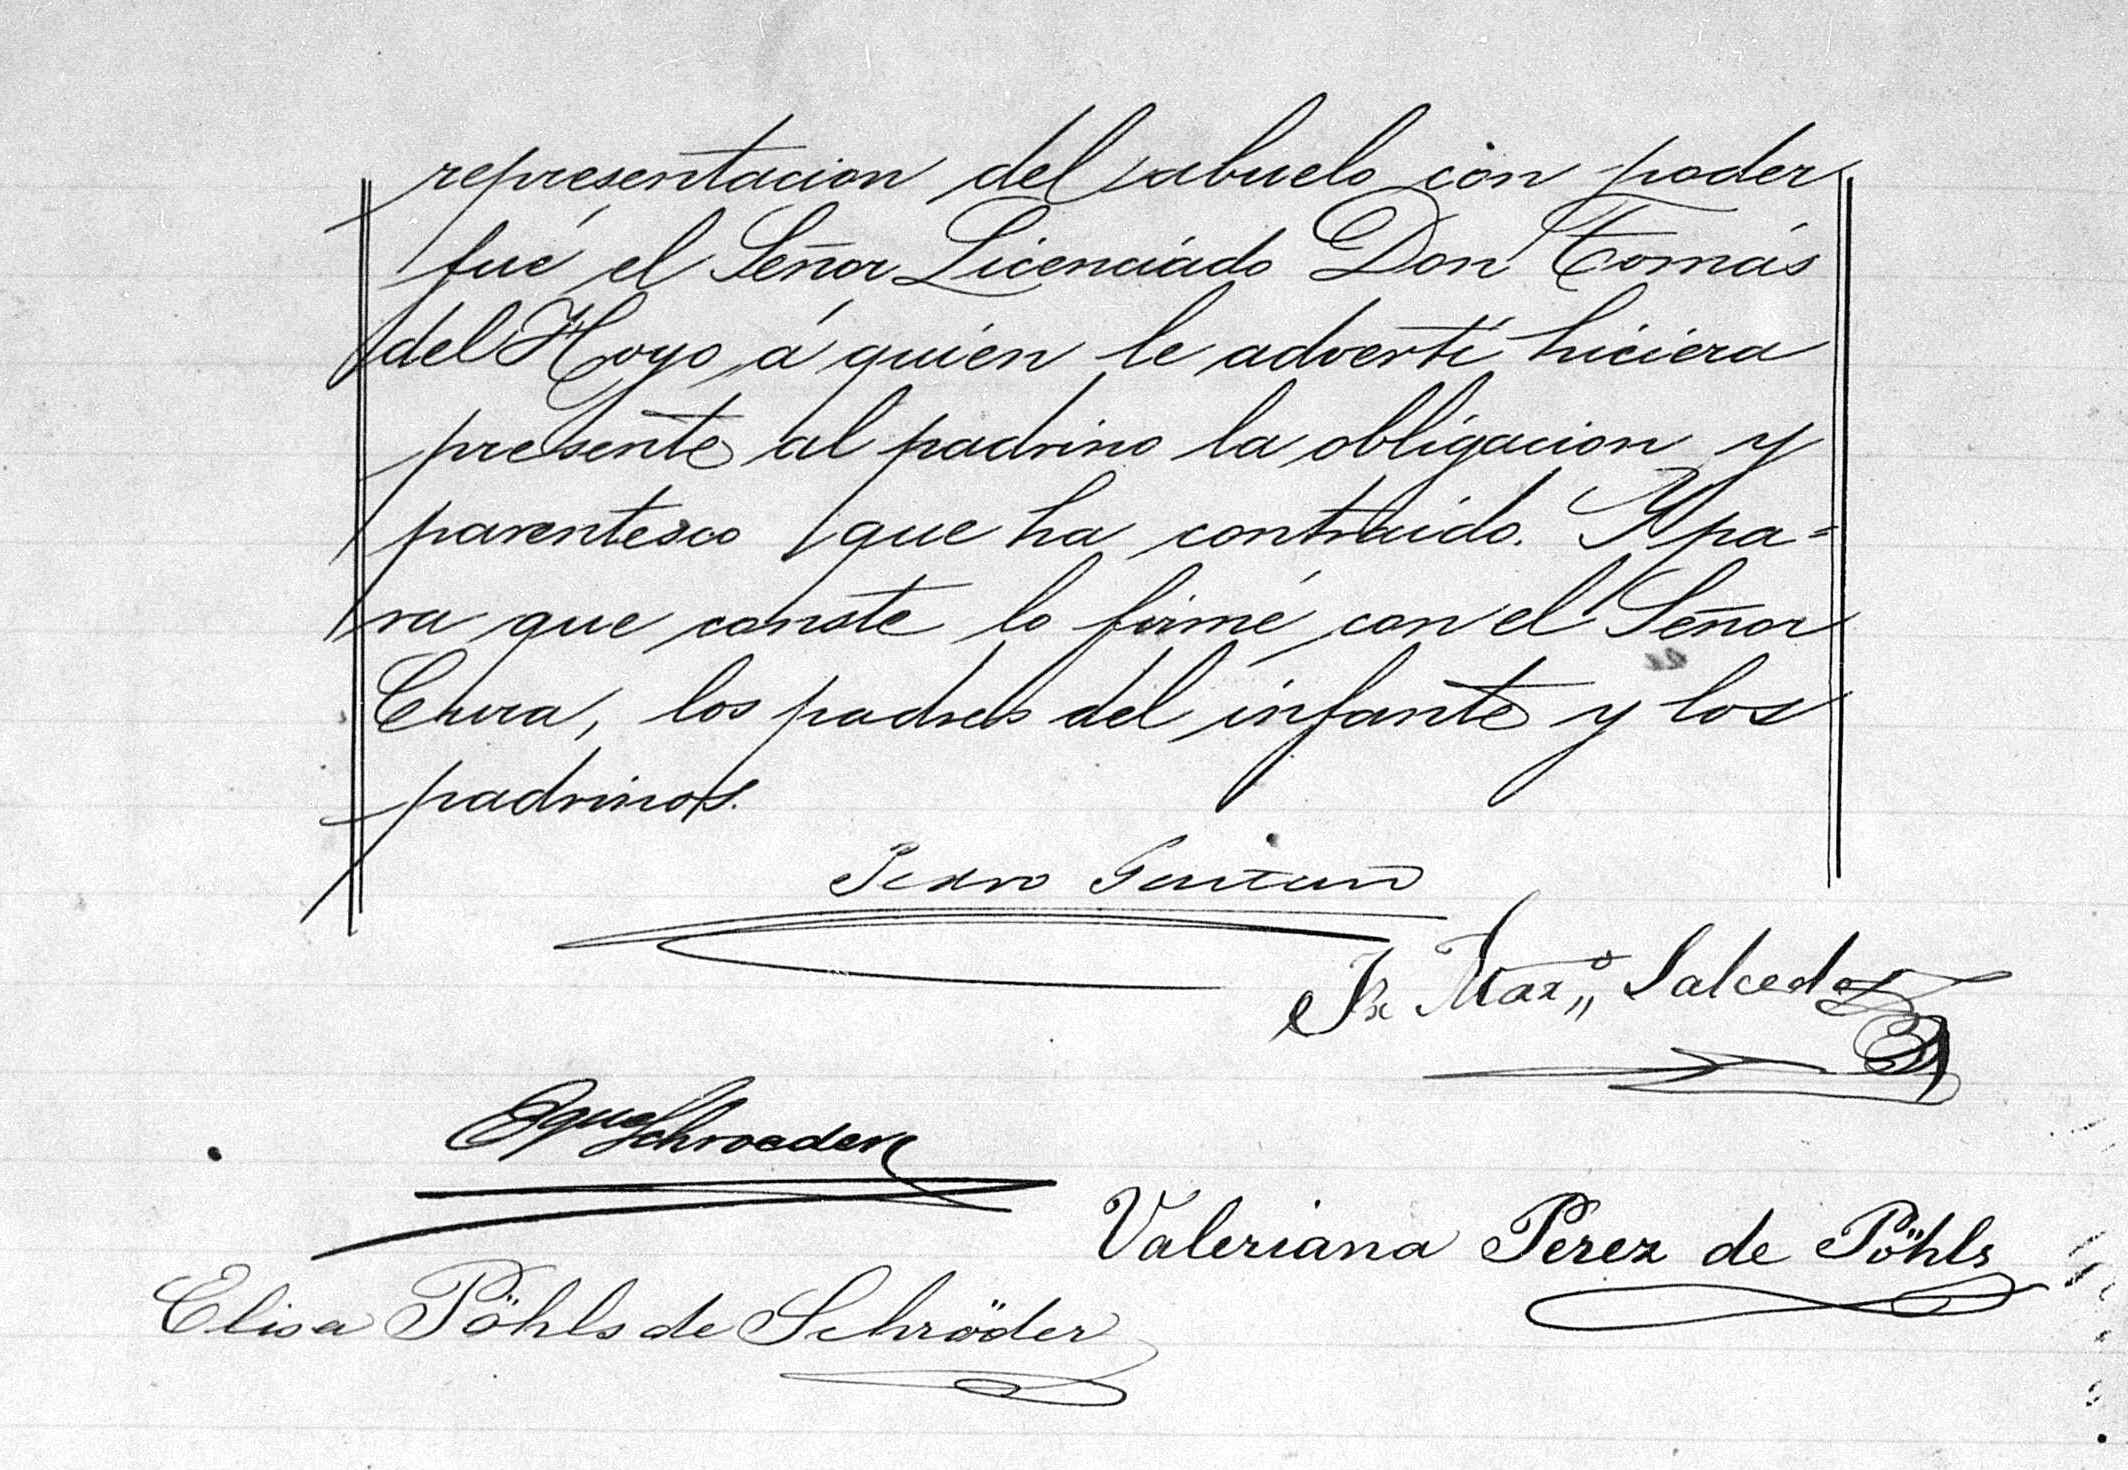 representacion del abuelo con poder
fué el Señor Licenciado Don Tomás
del Hoyo á quien le advertí hiciera
presente al padrino la obligacion y
parentesco que ha contraido. Y pa=
ra que conste lo firmé con el Señor
Cura, los padres del infante y los
padrinos.
Pedro Gaitan
Fr. Max,,o Salcedo
Schroeder
Valeriana Perez de Pöhls
Elisa Pöhls de Schröder